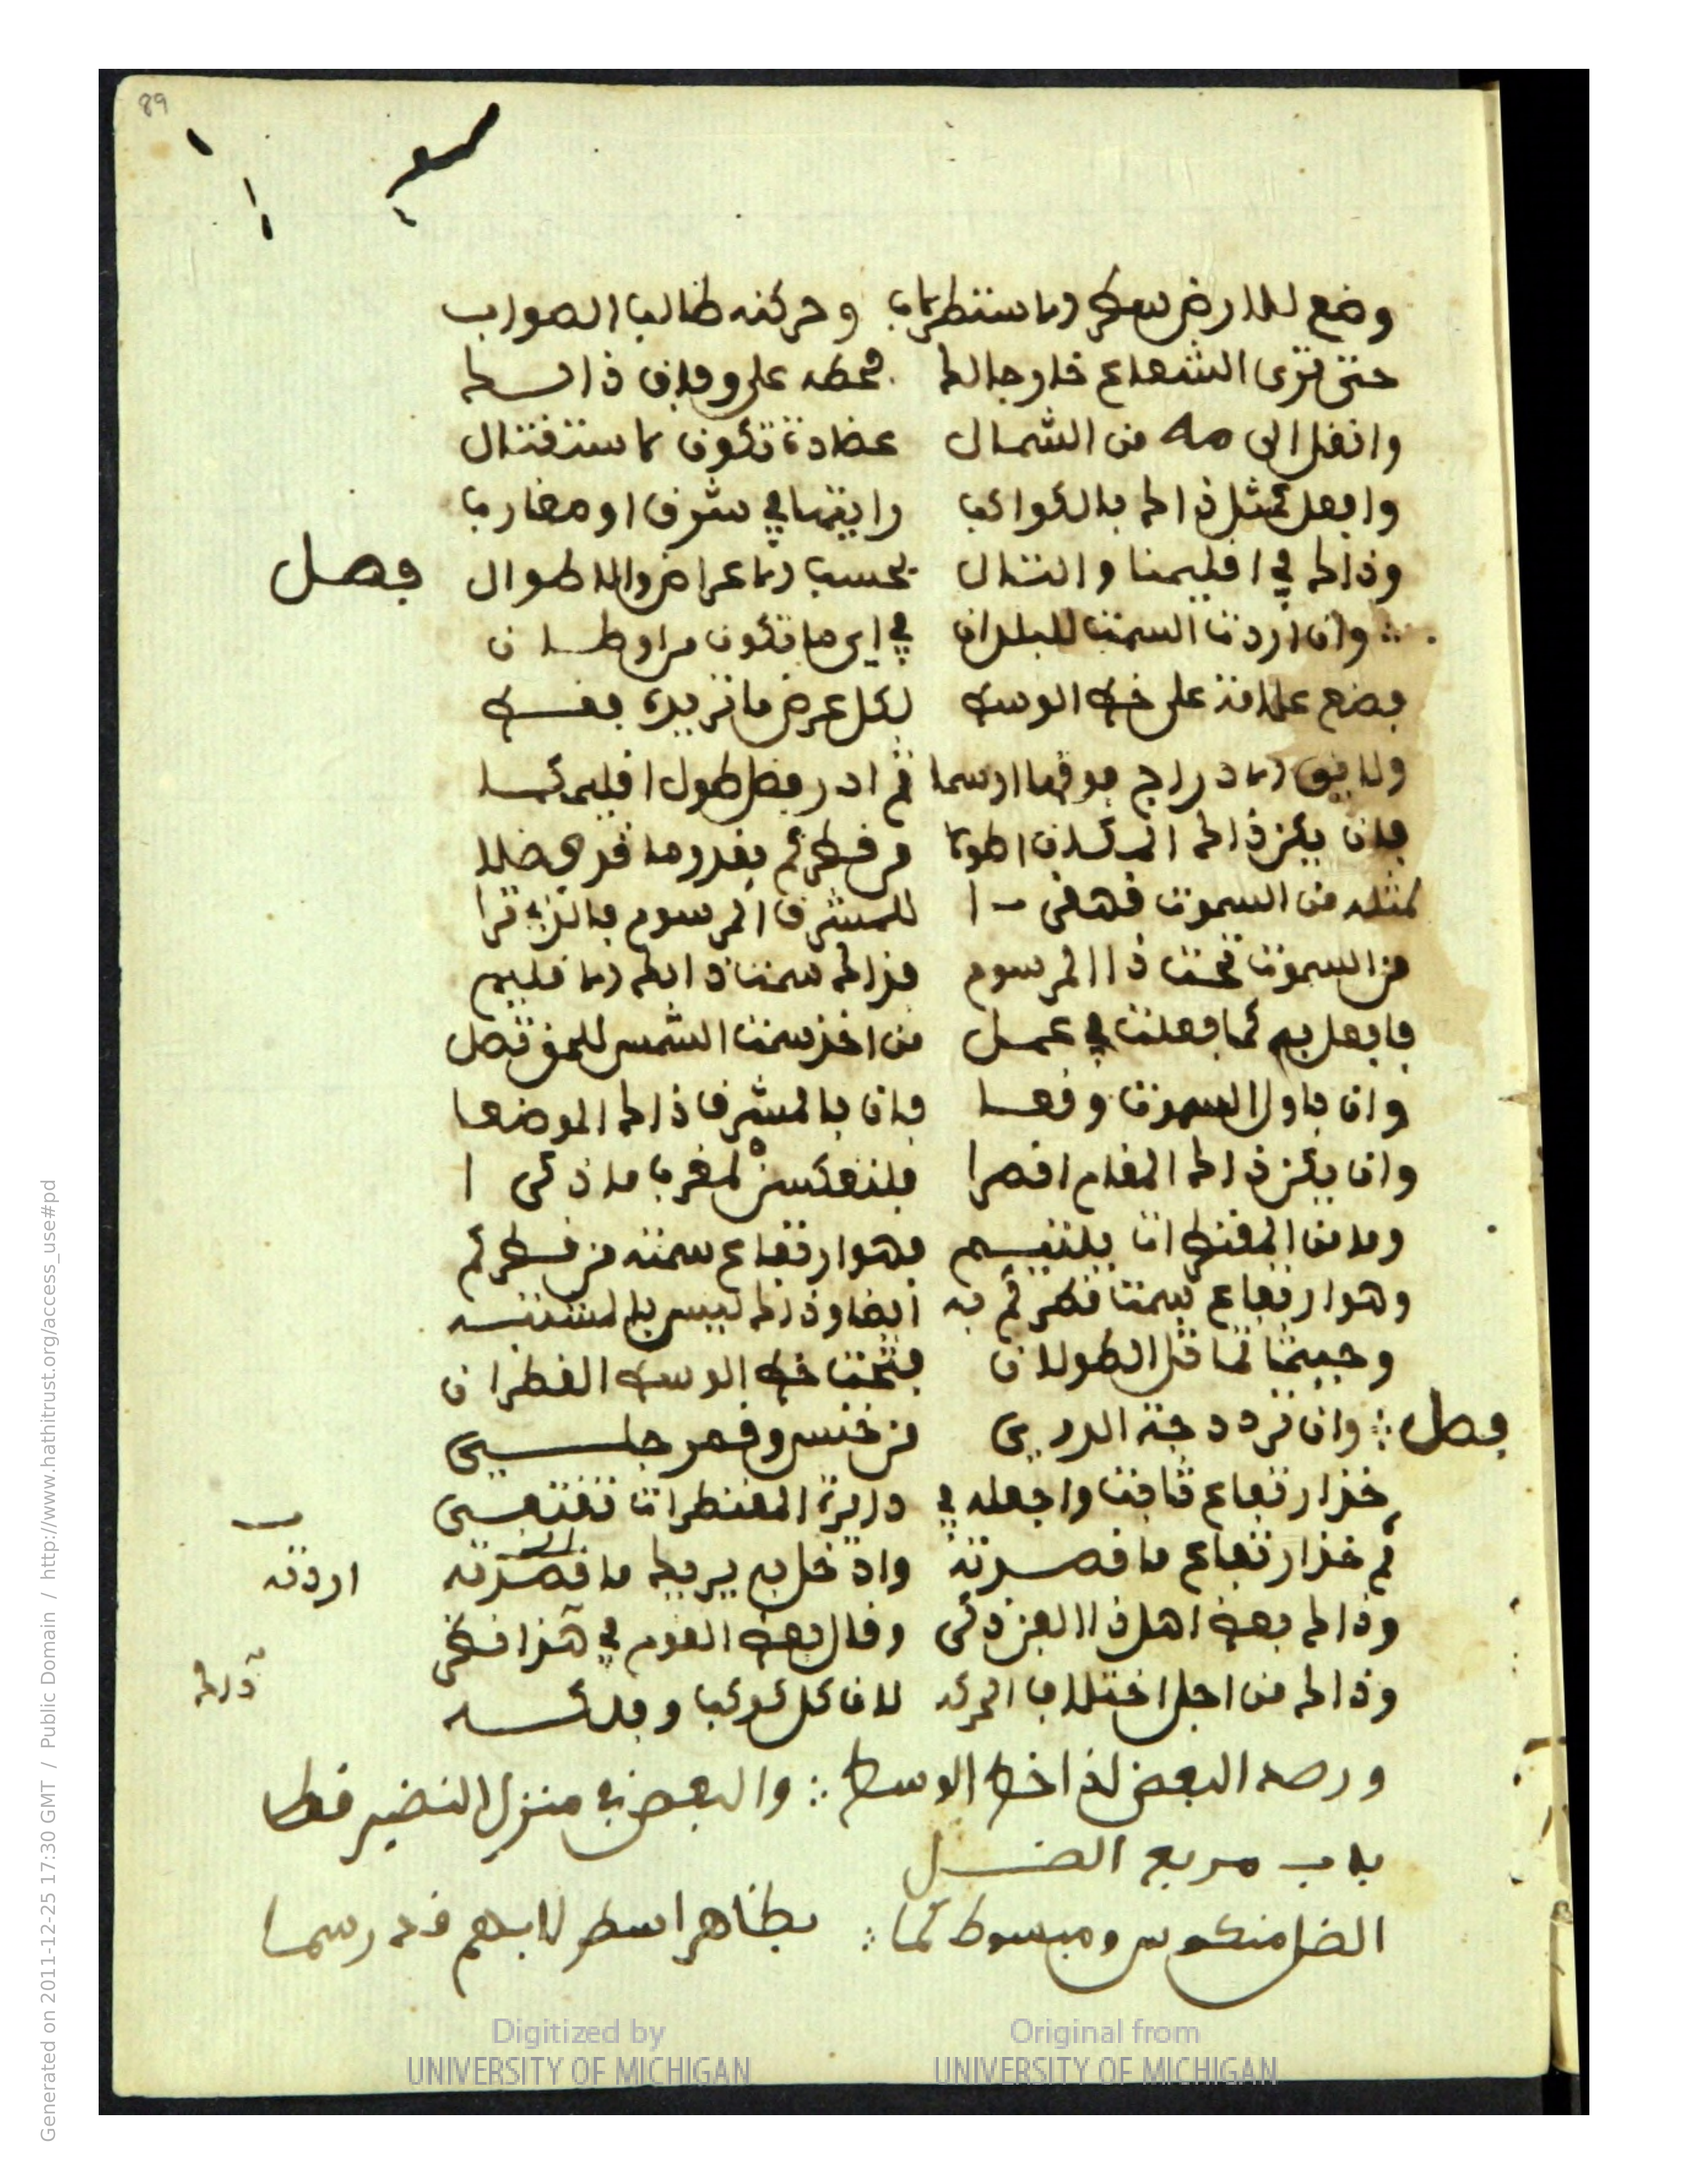 89
وضع للارض سطح الاسطرلاب وحركنه طالب الصواب
حتى ترى الشعاع خارجا لك فحطه على وفاق ذا
وانقل الى من الشمال عضادة تكون كاستقبال
وافعل كمثل ذالك بالكواكب رايتها في شرق او مغارب
وذالك في اقليمنا والتال بحسب الاعراض والاطوال فصل
وان اردت السمت للبلدان في اي ما تكون من اوطان
فضع علامة على خط الوسط لكل عرض ما تريده فقط
ولافق الادراج فوقها ارسما ثم ادر فضل طول اقليم كما
فان يكن ذالك المكان اطولا من قطركم بقدر ما قد فضلا
كمثله من السموت للمشرق المرسوم بالذي ترا
من السموت تحت ذا المرسوم فذالك سمت ذالك الاقليم
فافعل به كما فعلت في عمل من اخذ سمت الشمس
وان باول السموت وقعا فان بالمشرق ذالك الموضعا
وان يكن ذالك المقام اقصرا فلتعكسن لمغرب ما ذكرا
وما من المقنطرات فهو ارتفاع سمته من قطركم
وهو ارتفاع سمت قطركم به ايضا وذالك ليس بالمشتبه
وحيثما تماثل الطولان فتحت خط الوسط القطران
فصل وان ترد درجة الدري من خنس وقمر جلي
خذ ارتفاع ثابت واجعله في دايرة المقنطرات تقتفي
ثم خذ ارتفاع ما قصدته وادخل به يريك ما قصدته
اردته
وذالك بعض اهل ذا الفن ذكر وقال بعض القوم في هذا نظر
وذالك من اجل اختلاف الحركه لان كل كوكب وفلكه
ورصد البعض لذا خط الوسط والبعض في منزل النضير فقط
باب مربع الضل
الضل منكوس ومبسوط كما بظاهر اسطرلابهم قد رسما
Digitized by UNIVERSITY OF MICHIGAN
Original from UNIVERSITY OF MICHIGAN
Generated on 2011-12-25 17:30 GMT / Public Domain / http://www.hathitrust.org/access_use#pd